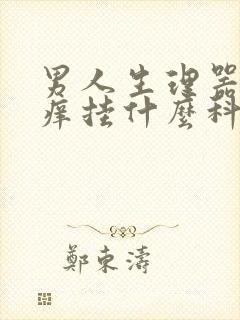 男人生理器
痒挂什麼科
鄭東濤